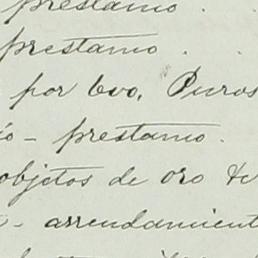 prestamo .
prestamo .
por 600, Puros
io - prestamo .
objetos de oro &
- arrendamient